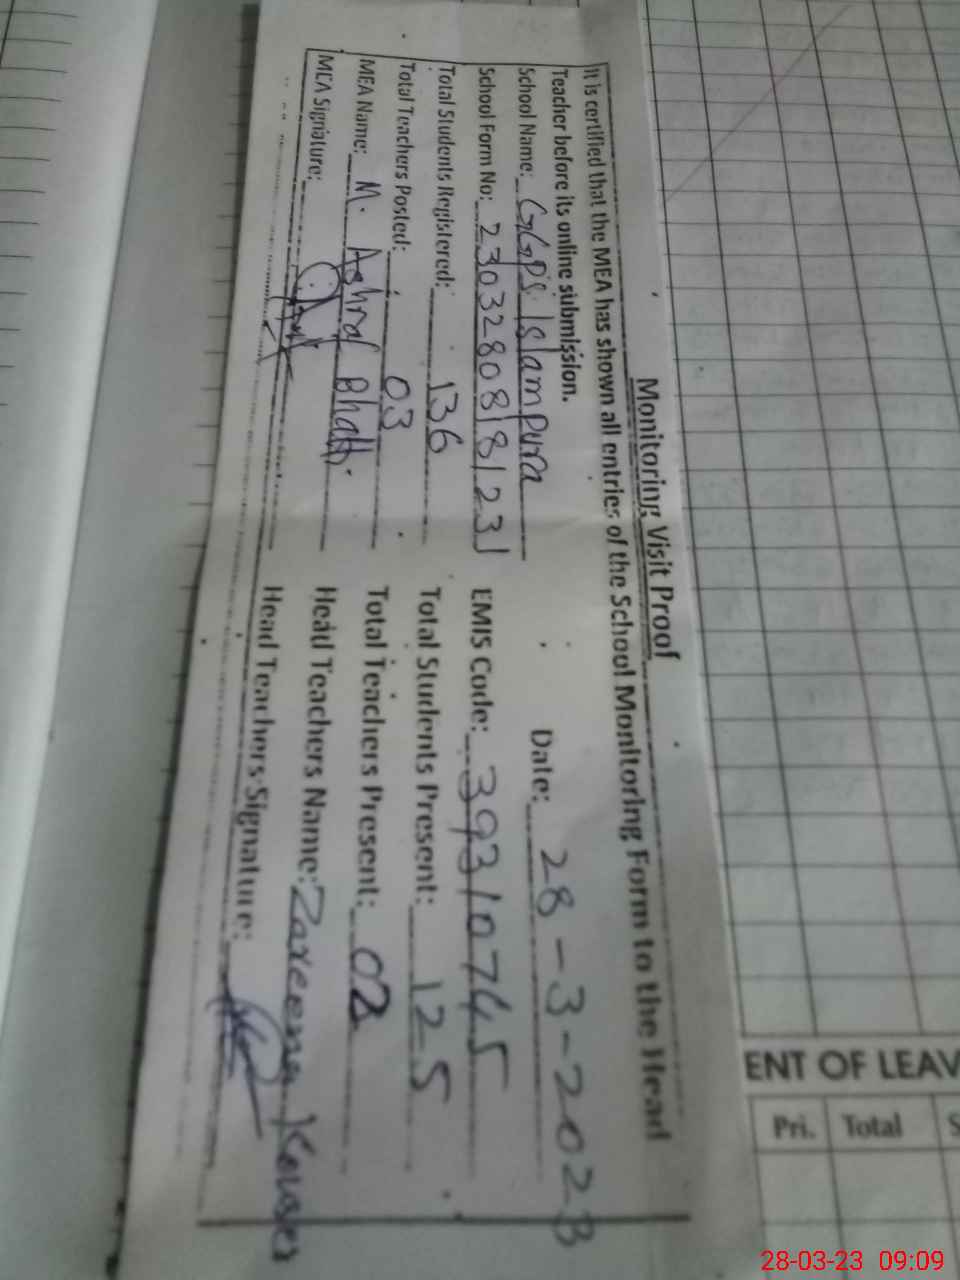 Monitoring Visit Proof
It is certified that the MEA has shown all entries of the School Monitoring Form to the Head
Teacher before its online submission.
School Name: GGPS Islampura Date: 28-3-2023
School Form No: 23032808181231 EMIS Code: 39310745
Total Students Registered: 136 Total Students Present: 125
Total Teachers Posted: 03 Total Teachers Present: 02
MEA Name: M. Ashraf Bhatti. Head Teachers Name: Zareena Kouser
MCA Signature: Head Teachers Signature:
ENT OF LEAV
Pri. Total S
28-03-23 09:09